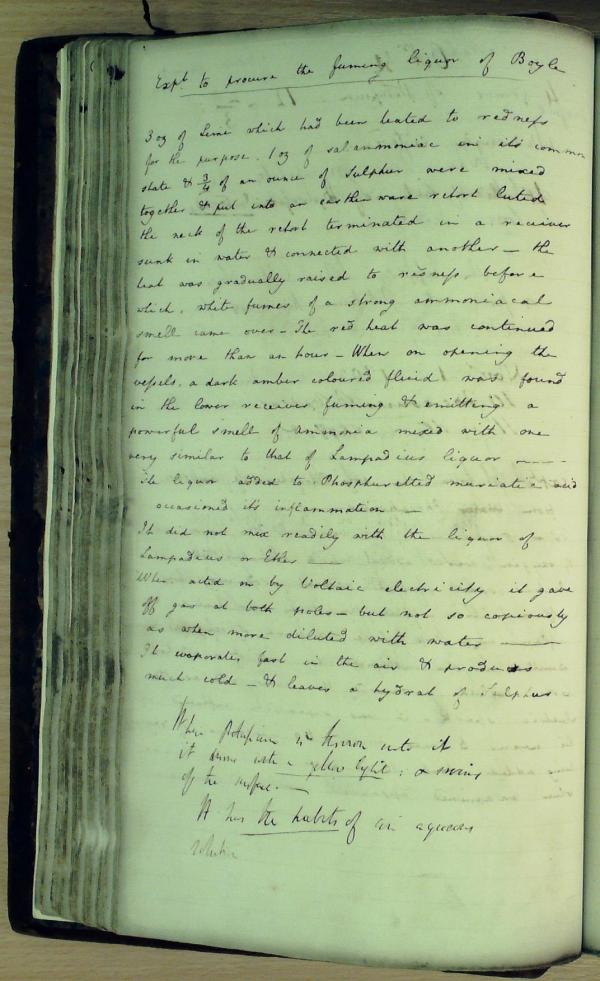 Expt to procure the fuming liquor of Boyle
3 oz of Lime which had been heated to redness
for the purpose. 1 oz of sal ammoniac in its common
state & 3/4 of an ounce of Sulphur were mixed
together & put into an earthen ware retort luted
the neck of the retort terminated in a receiver
sunk in water & connected with another — the
heat was gradually raised to redness before
which, white fumes of a strong ammoniacal
smell came over – The red heat was continued
for more than an hour – When on opening the
vessels, a dark amber coloured fluid was found
in the lower receiver, fuming & emitting a
powerful smell of ammonia mixed with one
very similar to that of Lampadius liquor —
The liquor added to Phosphuretted muriatic acid
occasioned its inflammation –
It did not mix readily with the liquor of
Lampadius or Ether —
When acted on by Voltaic electricity it gave
off gas at both poles – but not so copiously
as when more diluted with water —
It evaporates fast in the air & produces
much cold – & leaves a hydrat of Sulphur
When Potassium is thrown into it
it burns with a yellow light : & swims
off the surface. —
It has the habits of an aqueous
solution